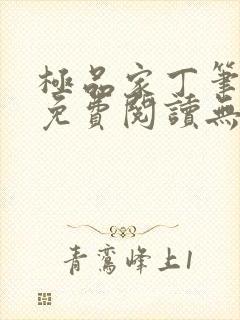 極品家丁筆
免費閱讀無
青鸞峰上1